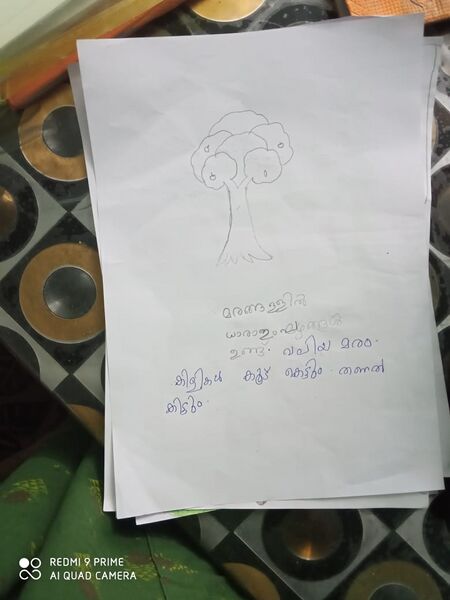 മരങ്ങള്ളിൽ
ഉണ്ട്. വലിയ മരം.
കിളികൾ കൂട് കെട്ടും. തണൽ
കിട്ടും.
REDMI 9 PRIME
AI QUAD CAMERA